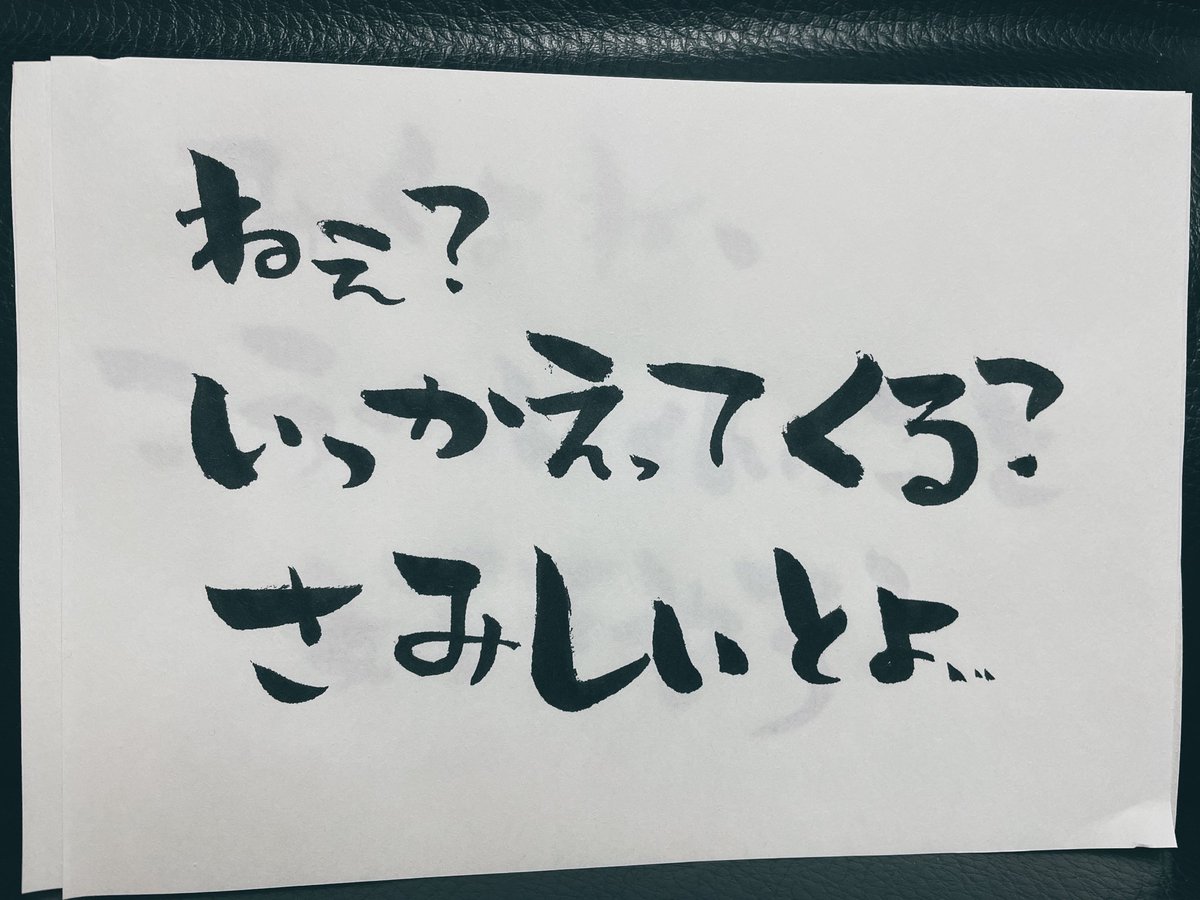 ねぇ?
いつかえってくる?
さみしいとよ...